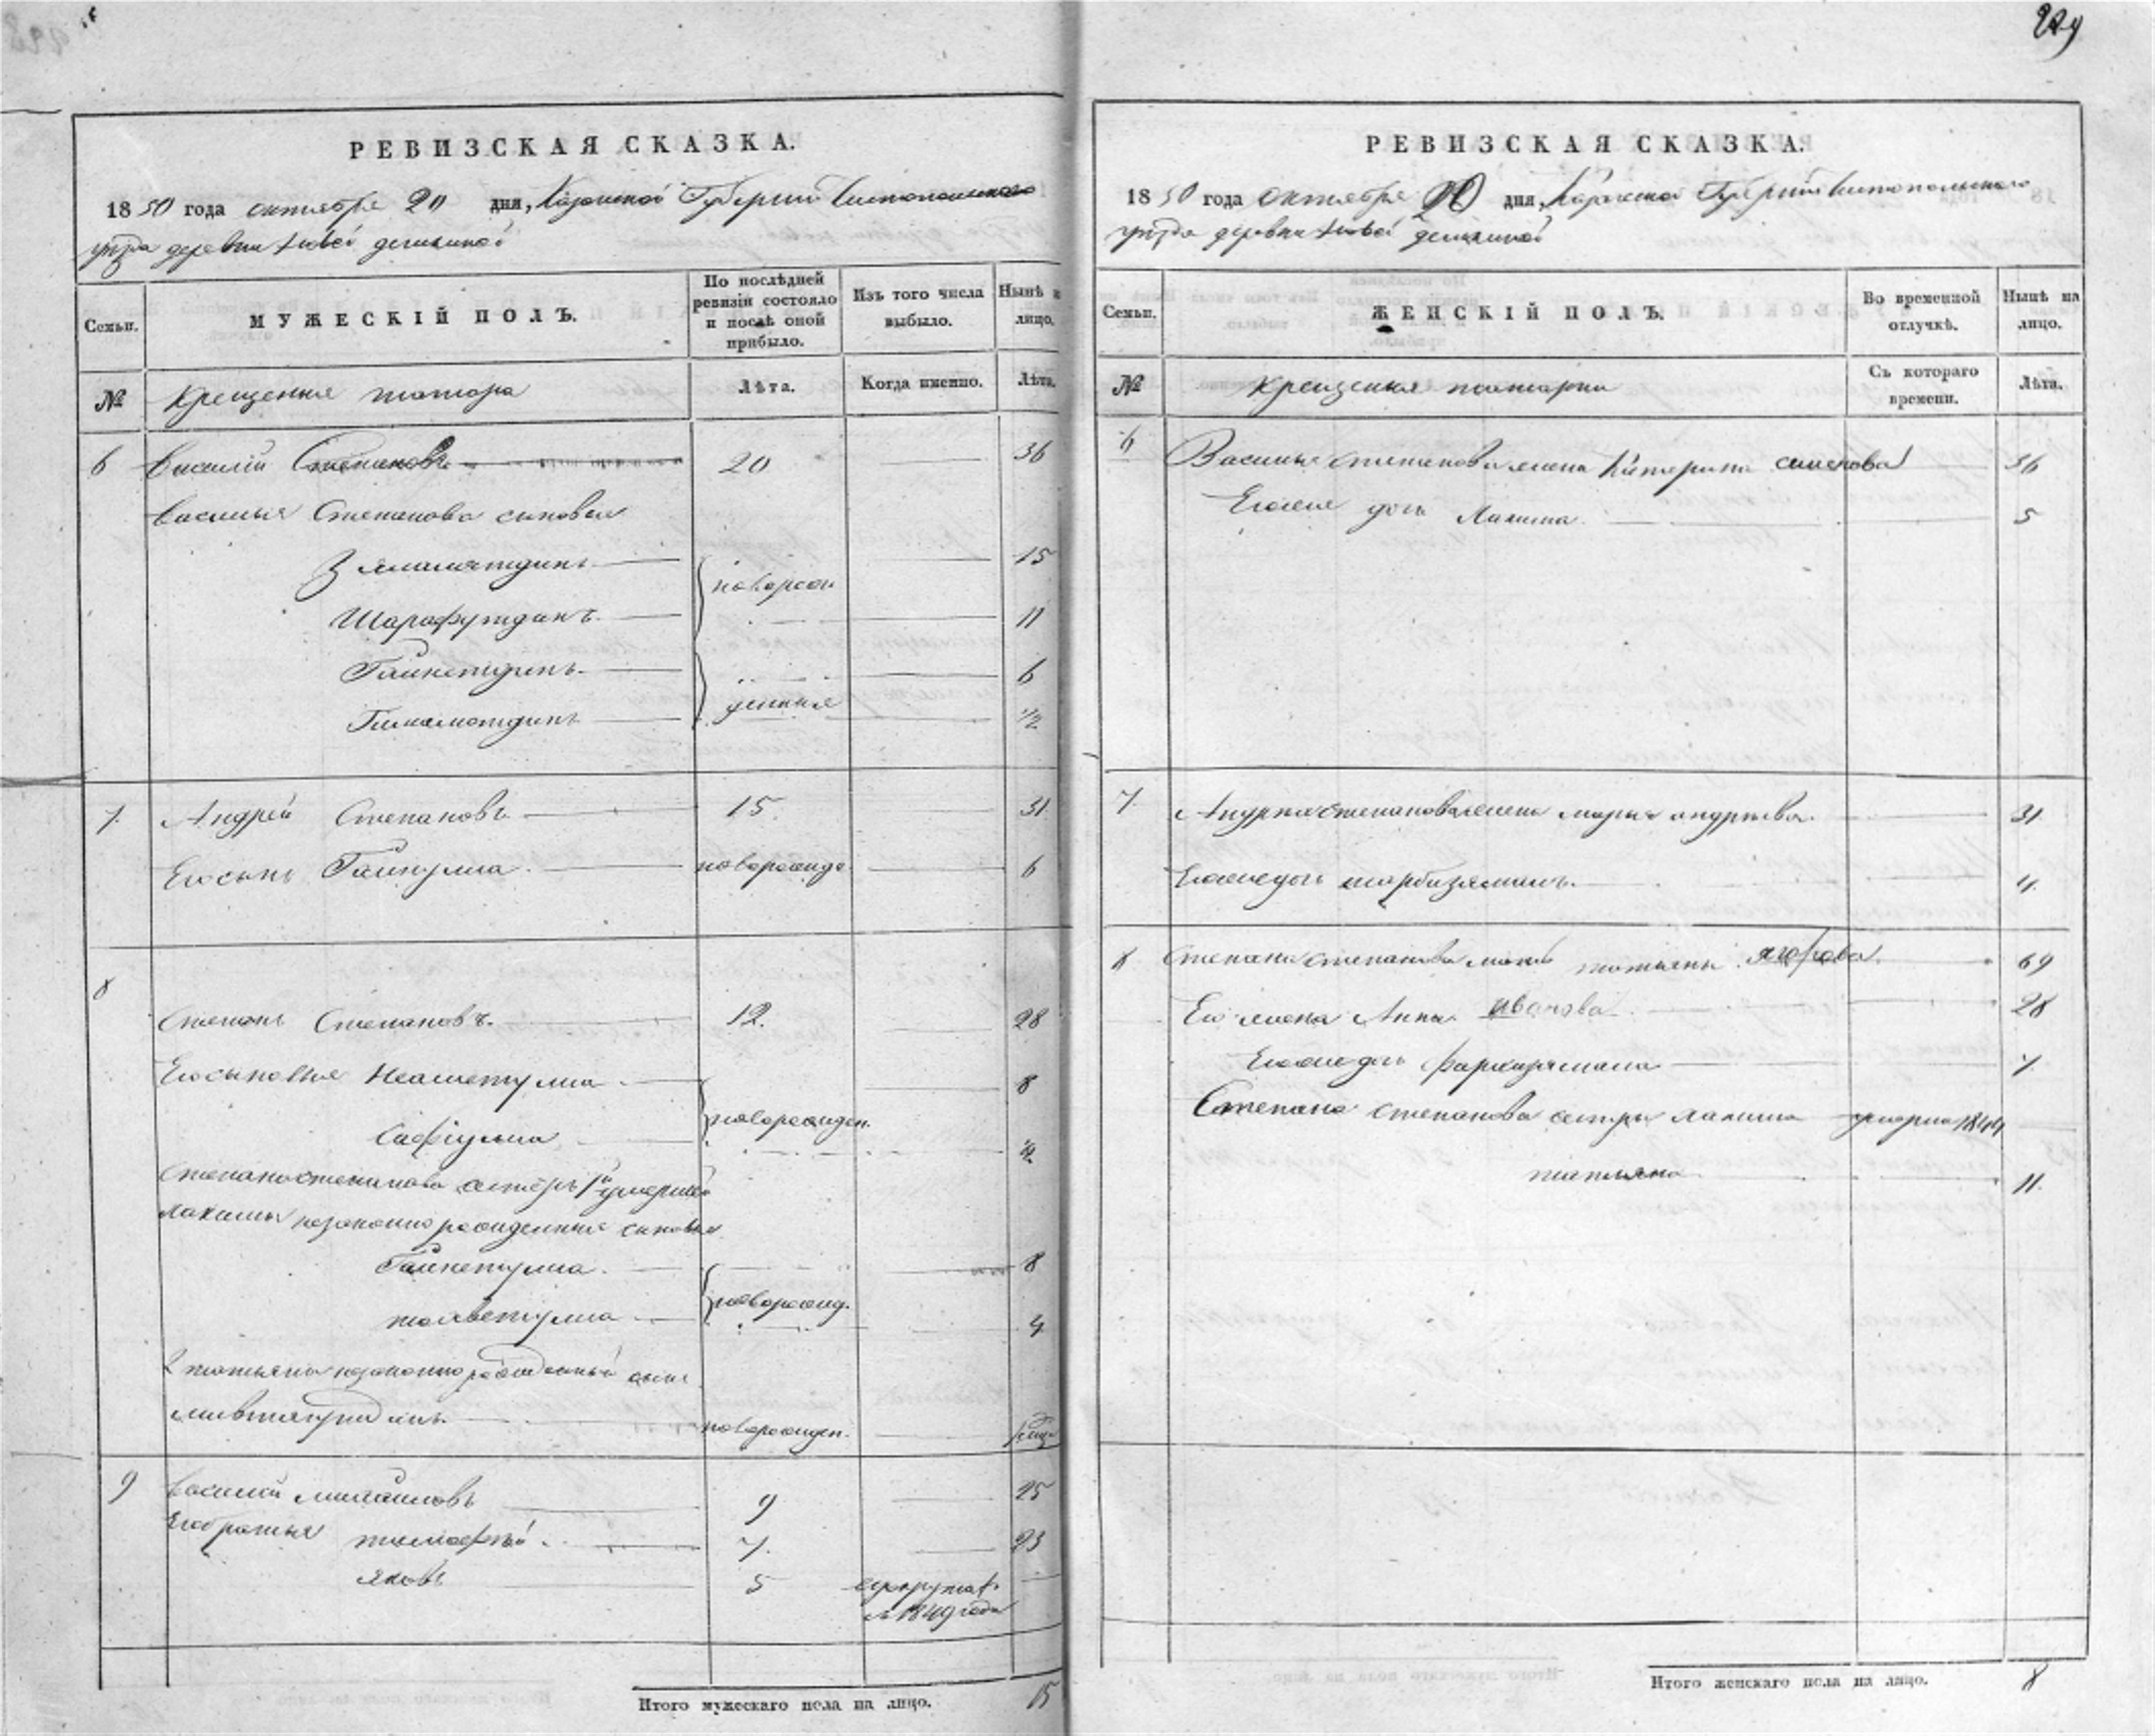 229
РЕВИЗСКАЯ СКАЗКА.
1850 года октября 20 дня, Казанской Губернии Чистопольского
уѣзда деревни Новой
Семьи.
МУЖЕСКІЙ ПОЛЪ.
По послѣдней ревизіи состояло и послѣ оной прибыло.
Изъ того числа выбыло.
Нынѣ на лицо.
№
Крещеныя татара
Лѣта.
Когда именно.
Лѣта.
6 Василій Степановъ 20 36
Василья Степанова сыновья
Зямалятдинъ 15
новорож
Шарафутдинъ 11
Гайнетдинъ 6
денныя
Гимаметдинъ 1/2
7. Андрей Степановъ 15. 31.
Его сынъ Гайнулла новорожде 6
8
Степанъ Степановъ. 12. 28
Его сыновья Неаметулла 8
новорожден.
Сафіулла
Степана Степанова сестёръ 1й умершей
Макины незаконнорожденныя сыновья
Гайнетулла 8
новорожд.
4
2 Татьяны незаконнорожденный сынъ
новорожден.
9 Василій Михайловъ 9 25
Его братья Тимофѣй 7. 23
Яковъ 5
1849 года
Итого мужескаго пола на лицо. 15
РЕВИЗСКАЯ СКАЗКА.
1850 года октября 20 дня, Казанской Губерніи Чистопольскаго
уѣзда деревни Новой
Семьи.
ЖЕНСКІЙ ПОЛЪ.
Во временной отлучкѣ.
Нынѣ на лицо.
№
Крещеныя татарки
Съ котораго времени.
Лѣта.
6 Василья Степанова жена Катерина Семенова 36
дочь 5
7. Андрея Степанова жена Марья Андреева 31.
4.
8 Степана Степанова мать Татьяна Ягорова 69
Его жена Анна Иванова 28
дочь 7.
Степана Степанова сестры умерла 1844
Татьяна 11.
Итого женскаго пола на лицо. 8